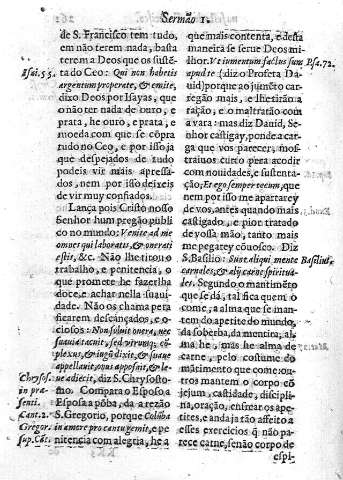 Sermão 1.
de S. Francisco tem tudo,
em não terem nada, basta
terem a Deos que os sustẽ
ta do Ceo: Qui non habetis
argentum properate, & emite,
dizo Deos por Isayas, que
o não ter nada de ouro, e
prata, he ouro, e prata, e
moeda com que se cõpra
tudo no Ceo, e por isso ja
que despejados de tudo
podeis vir mais apressa-
dos, nem por isso deixeis
de vir muy confiados.
Lança pois Cristo nosso
Senhor hum pregão publi
co no mundo: Venite ad me
omnes qui laboratis, & onerati
estis, &c. Não lhe tirou o
trabalho, e penitencia, o
que promete he fazerlha
doce, e achar nella suaui-
dade. Não os chama pera
ficarem descançados, e o-
ciosos: Non soluit onera, nec
suauia tacuit, sed utrumq; cõ-
plexus, & iugũ dixit, & suaue
appellauit, onus apposuit, & le-
ue adiecit, diz S. Chrysosto-
mo. Compara o Esposo a
Esposa a põba, da a rezão
S. Gregorio, porque Colũba
in amore pro cantu gemit, e pe
nitencia com alegria, he a
Esai. 55.
Chrysos.
in præ-
senti.
Cant. 2.
Gregor.
sup. Cãt.
que mais contenta, e desta
maneira se serue Deos mi-
lhor. Ut iumentum factus sum
apud te (dizo Profeta Da-
uid) porque ao jumẽto car-
regão mais, e lhe tirão a
ração, e o maltratão com
a vara: mas diz Dauid, Se-
nhor castigay, ponde a car-
ga que vos parecer, mos-
traiuos curto pera acodir
com nouidades, e sustenta-
ção; Et ego semper tecum, que
nem por isso me apartarey
de vos, antes quando mais
castigado, e pior tratado
de vossa mão, tanto mais
me pegarey cõuosco. Diz
S. Basilio: Sunt aliqui mente
carnales, & alij carne spiritua-
les. Segundo o mantimẽto
que se dá, tal fica quem o
come, a alma que se man-
tem do apetite do mundo,
da soberba, da mentira, al-
ma he, mas he alma de
carne, pelo costume do
mãtimento que come: ou-
tros mantem o corpo cõ
jejum, castidade, discipli-
na, oração, enfrear os ape-
tites, e anda ja tão affeito a
esses exercicios q̃ não pa-
rece carne, senão corpo de
espi-
Psa. 72.
Basilius.